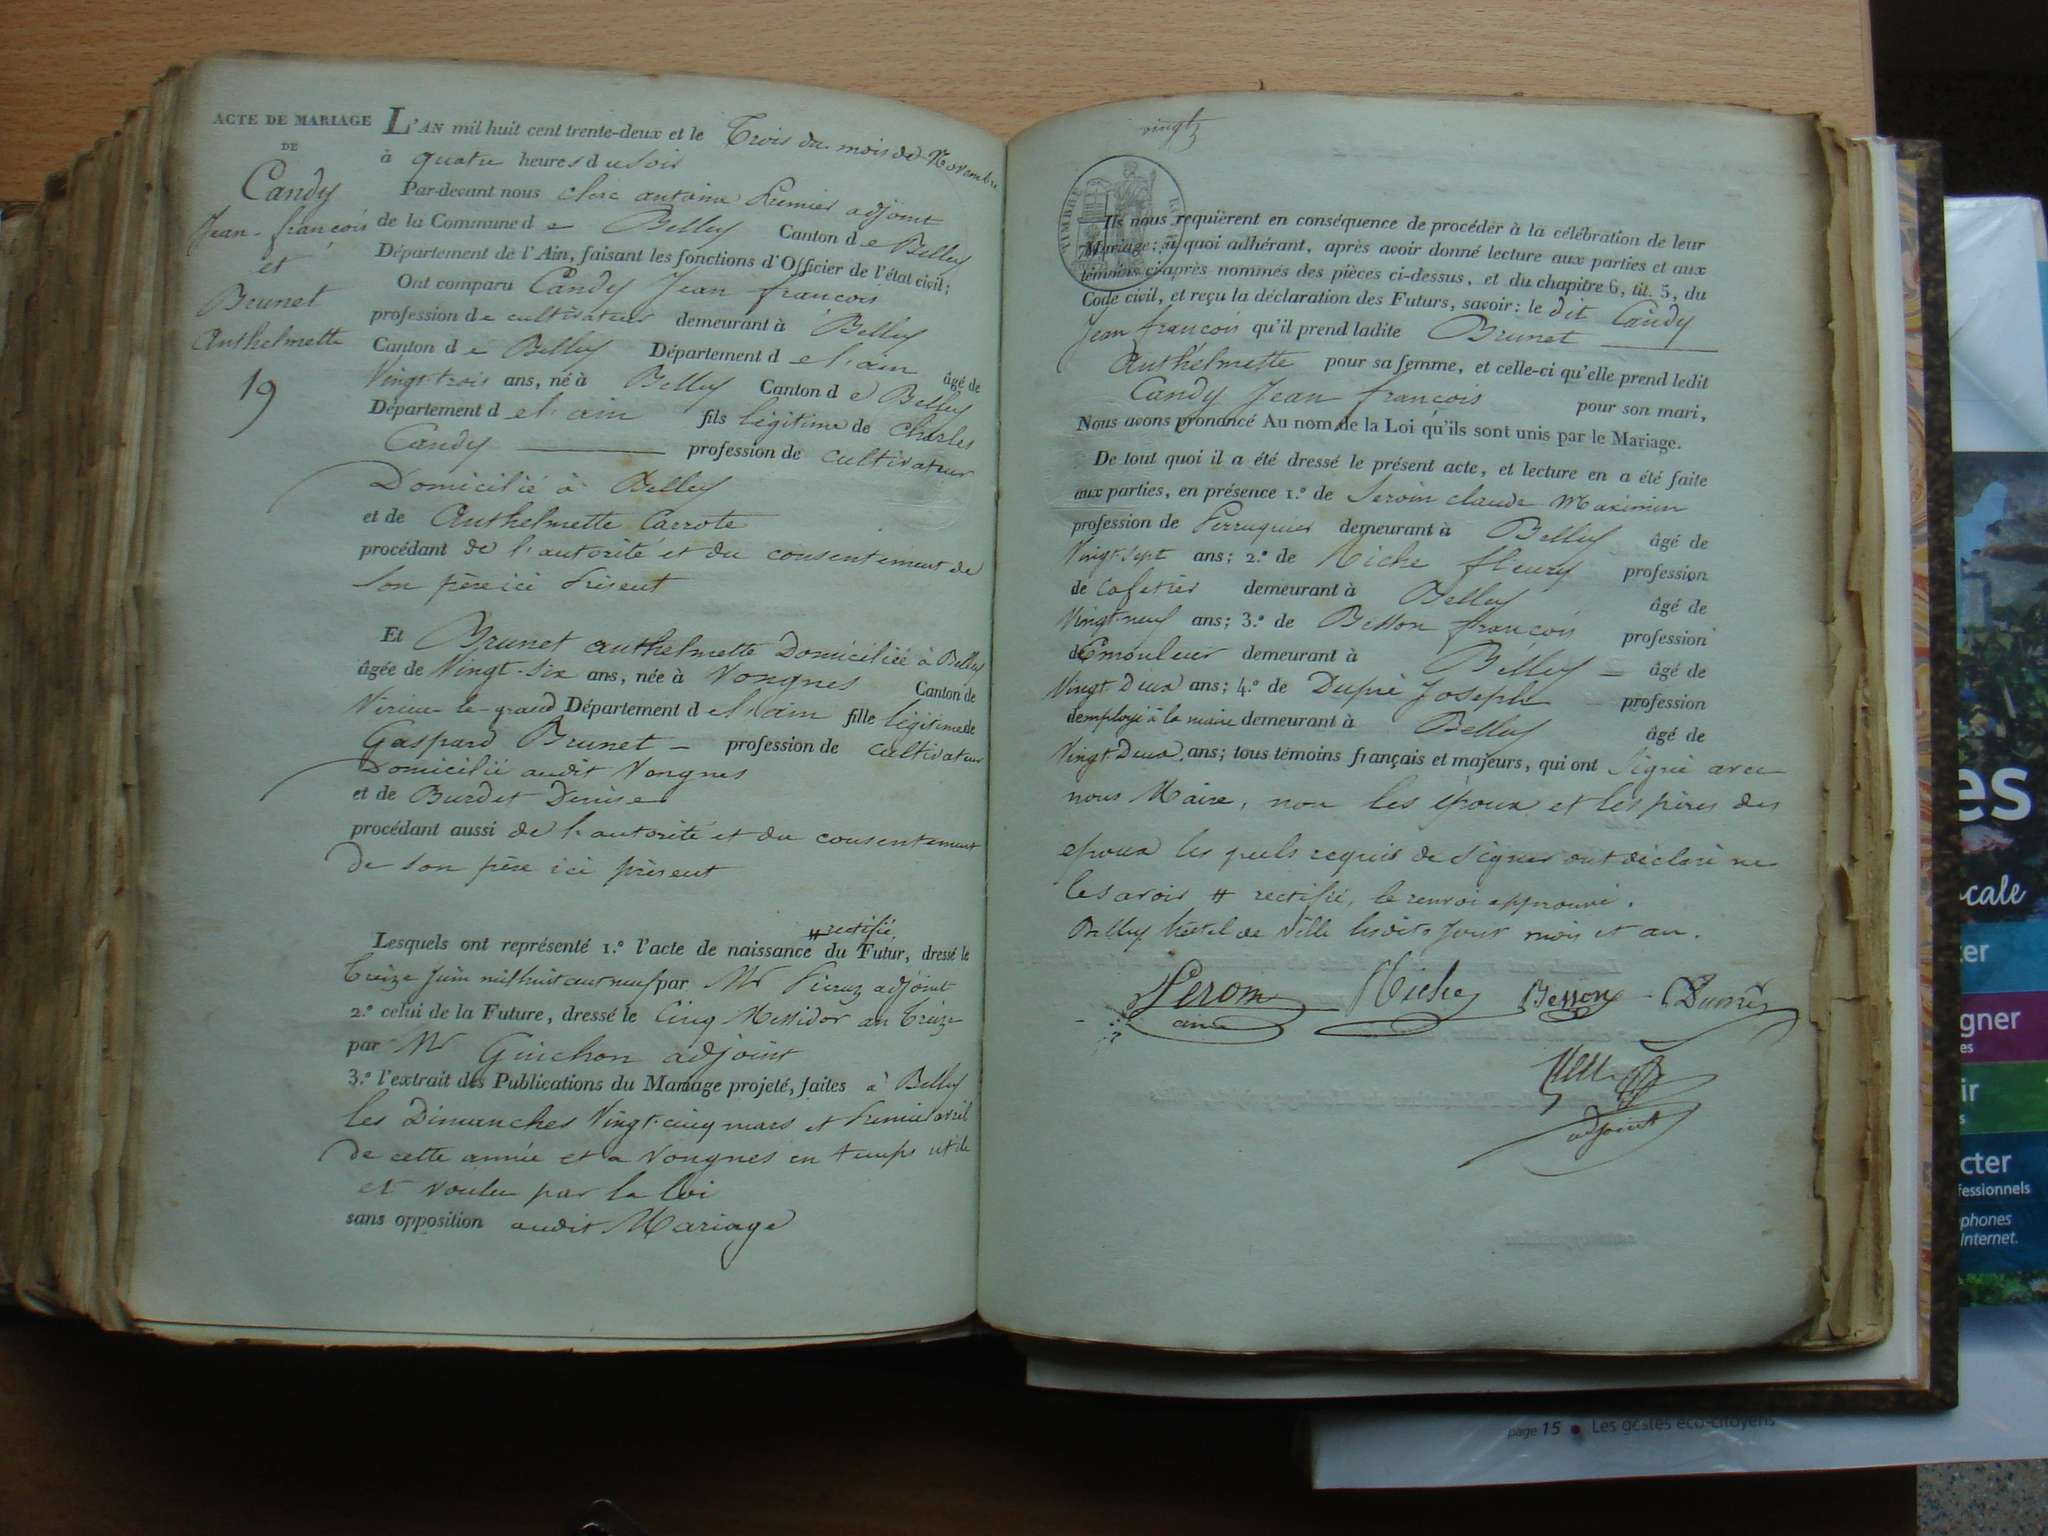 ACTE DE MARIAGE
DE
Candy
Jean-françois
et
Brunet
Anthelmette
19
L'AN mil huit cent trente-deux et le Trois du mois de Novembre
à quatre heures du soir
Par-devant nous clerc antoine Premier adjoint
de la Commune de Belley Canton de Belley
Département de l'Ain, faisant les fonctions d'Officier de l'état civil;
Ont comparu Candy Jean françois
profession de cultivateur demeurant à Belley
Canton de Belley Département de l'ain âgé de
Vingt-trois ans, né à Belley Canton de Belley
Département de l'ain fils légitime de Charles
Candy profession de cultivateur
Domicilié à Belley
et de Anthelmette Carrote
procédant de l'autorité et du consentement de
son père ici présent
Et Brunet anthelmette Domiciliée à Belley
âgée de Vingt-six ans, née à Vongnes Canton de
Virieu-le-grand Département de l'ain fille légitime de
Gaspard Brunet — profession de cultivateur
Domicilié audit Vongnes
et de Burdet Denise
procédant aussi de l'autorité et du consentement
de son père ici présent
# rectifié
Lesquels ont représenté 1.º l'acte de naissance du Futur, dressé le
treize Juin mil huit cent neuf par Mr adjoint
2.º celui de la Future, dressé le Cinq Messidor an treize
par Mr Guichon adjoint
3.º l'extrait des Publications du Mariage projeté, faites à Belley
les Dimanches Vingt-cinq mars et Premier avril
de cette année et a Vongnes en temps utile
et voulu par la loi
sans opposition audit Mariage
vingt
TIMBRE
Ils nous requièrent en conséquence de procéder à la célébration de leur
Mariage: à quoi adhérant, après avoir donné lecture aux parties et aux
témoins ci-après nommés des pièces ci-dessus, et du chapitre 6, tit. 5, du
Code civil, et reçu la déclaration des Futurs, savoir: le dit Candy
Jean françois qu'il prend ladite Brunet
Anthelmette pour sa femme, et celle-ci qu'elle prend ledit
Candy Jean francois pour son mari,
Nous avons prononcé Au nom de la Loi qu'ils sont unis par le Mariage.
De tout quoi il a été dressé le présent acte, et lecture en a été faite
aux parties, en présence 1.º de claude Maximin
profession de Perruquier demeurant à Belley âgé de
Vingt-sept ans; 2.º de Miche fleury profession
de Cafetier demeurant à Belley âgé de
Vingt-neuf ans; 3.º de Besson françois profession
de Emouleur demeurant à Belley — âgé de
Vingt Deux ans; 4.º de Dupré Joseph profession
d'employé à la mairie demeurant à Belley âgé de
Vingt Deux ans; tous témoins français et majeurs, qui ont signé avec
nous Maire, non les époux et les pères des
epoux les quels requis de signer ont déclaré ne
le savoir # rectifié, le renvoi approuvé.
Belley hôtel de Ville lesdits jour mois et an.
Miche Besson Dupré
ainé
adjoint
es
cale
ter
gner
es
ir
s
cter
fessionnels
phones
Internet.
page 15 • Les gestes éco-citoyens